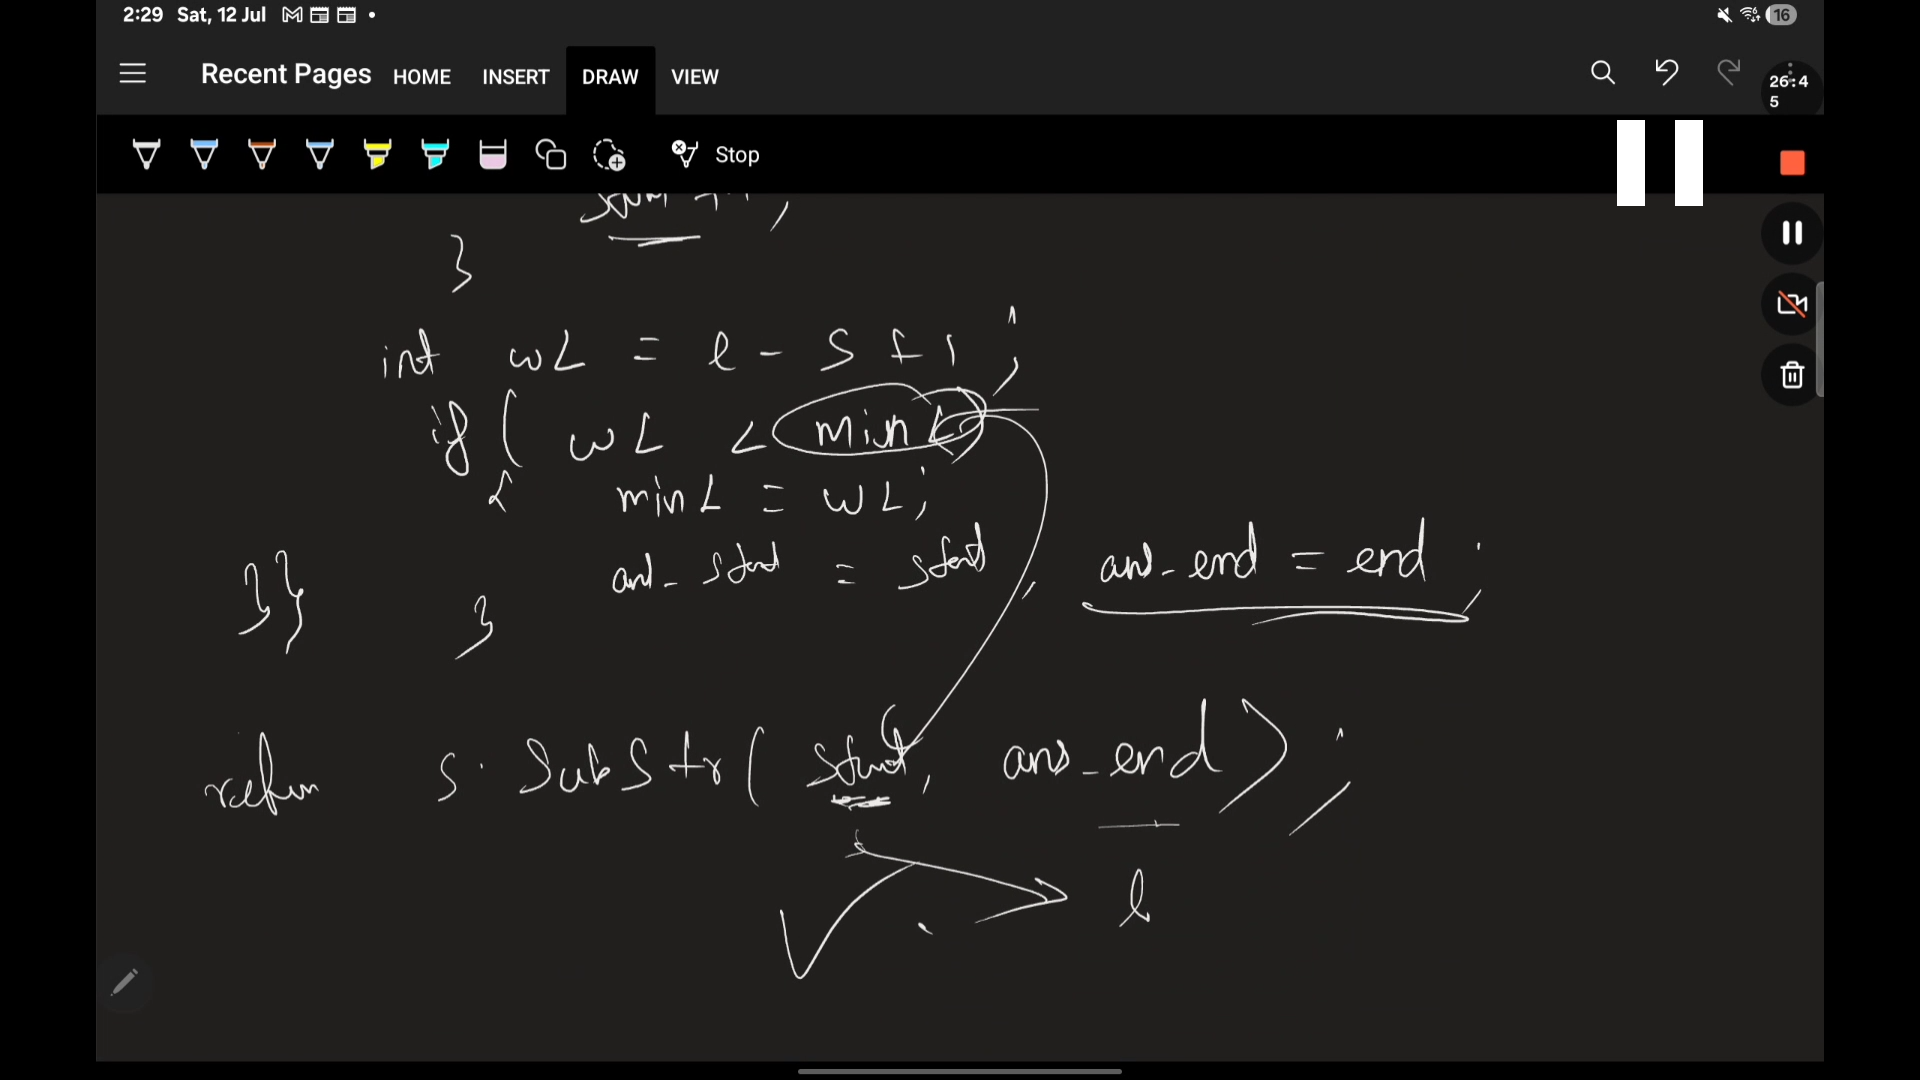 2:29 Sat, 12 Jul 16
Recent Pages HOME INSERT DRAW VIEW
26:4
5
Stop
}
int wL = e - s + 1 ;
if ( wL < minL )
{ minL = wL;
}} } ans_start = start , ans_end = end ;
return s. substr( start, ans_end ) ;
l